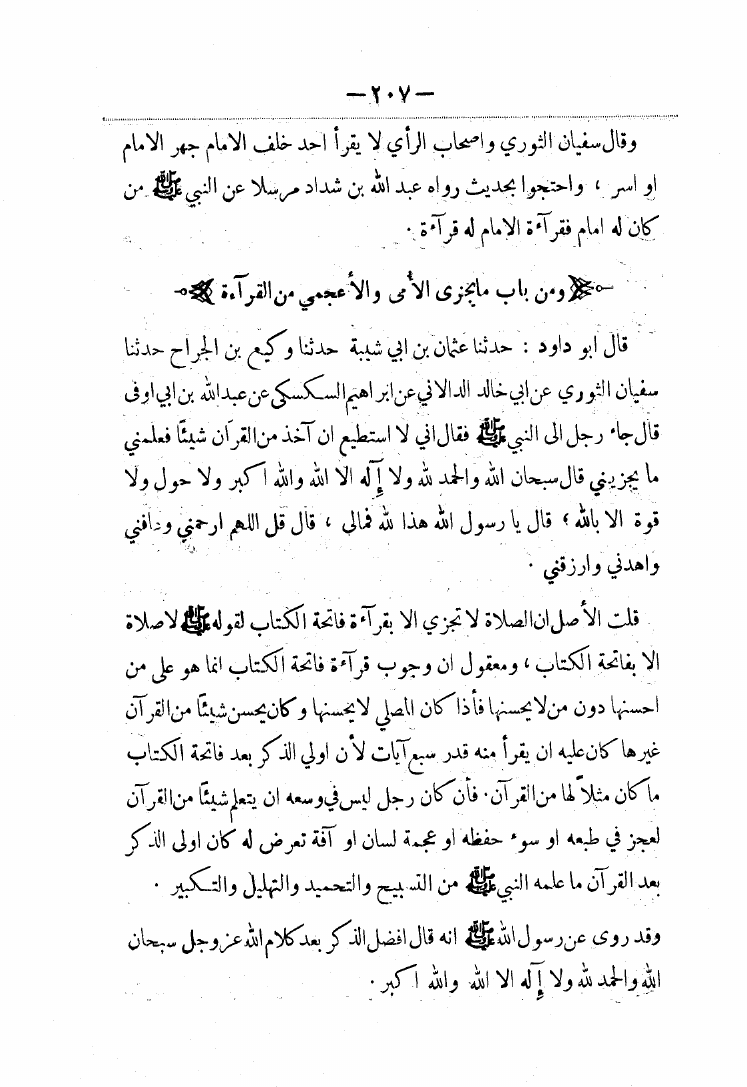 — ٢٠٧ —
وقال سفيان الثوري واصحاب الرأي لا يقرأ احد خلف الامام جهر الامام
او اسر ، واحتجوا بحديث رواه عبد الله بن شداد مرسلا عن النبي ﷺ من
كان له امام فقرآءة الامام له قرآءة .
ومن باب ما يجزى الأمى والأعجمي من القرآءة
قال ابو داود : حدثنا عثمان بن ابي شيبة حدثنا وكيع بن الجراح حدثنا
سفيان الثوري عن ابي خالد الدالاني عن ابراهيم السكسكي عن عبد الله بن ابي اوفى
قال جاء رجل الى النبي ﷺ فقال اني لا استطيع ان آخذ من القرآن شيئًا فعلمني
ما يجزيني قال سبحان الله والحمد لله ولا إله الا الله والله اكبر ولا حول ولا
قوة الا بالله ، قال يا رسول الله هذا لله فمالي ، قال قل اللهم ارحمني وعافني
واهدني وارزقني .
قلت الأصل ان الصلاة لا تجزي الا بقرآءة فاتحة الكتاب لقوله ﷺ لا صلاة
الا بفاتحة الكتاب ، ومعقول ان وجوب قرآءة فاتحة الكتاب انما هو على من
احسنها دون من لا يحسنها فأذا كان المصلي لا يحسنها وكان يحسن شيئًا من القرآن
غيرها كان عليه ان يقرأ منه قدر سبع آيات لأن اولي الذكر بعد فاتحة الكتاب
ما كان مثلاً لها من القرآن . فأن كان رجل ليس في وسعه ان يتعلم شيئًا من القرآن
لعجز في طبعه او سوء حفظه او عجمة لسان او آفة تعرض له كان اولى الذكر
بعد القرآن ما علمه النبي ﷺ من التسبيح والتحميد والتهليل والتكبير .
وقد روى عن رسول الله ﷺ انه قال افضل الذكر بعد كلام الله عز وجل سبحان
الله والحمد لله ولا إله الا الله والله اكبر .